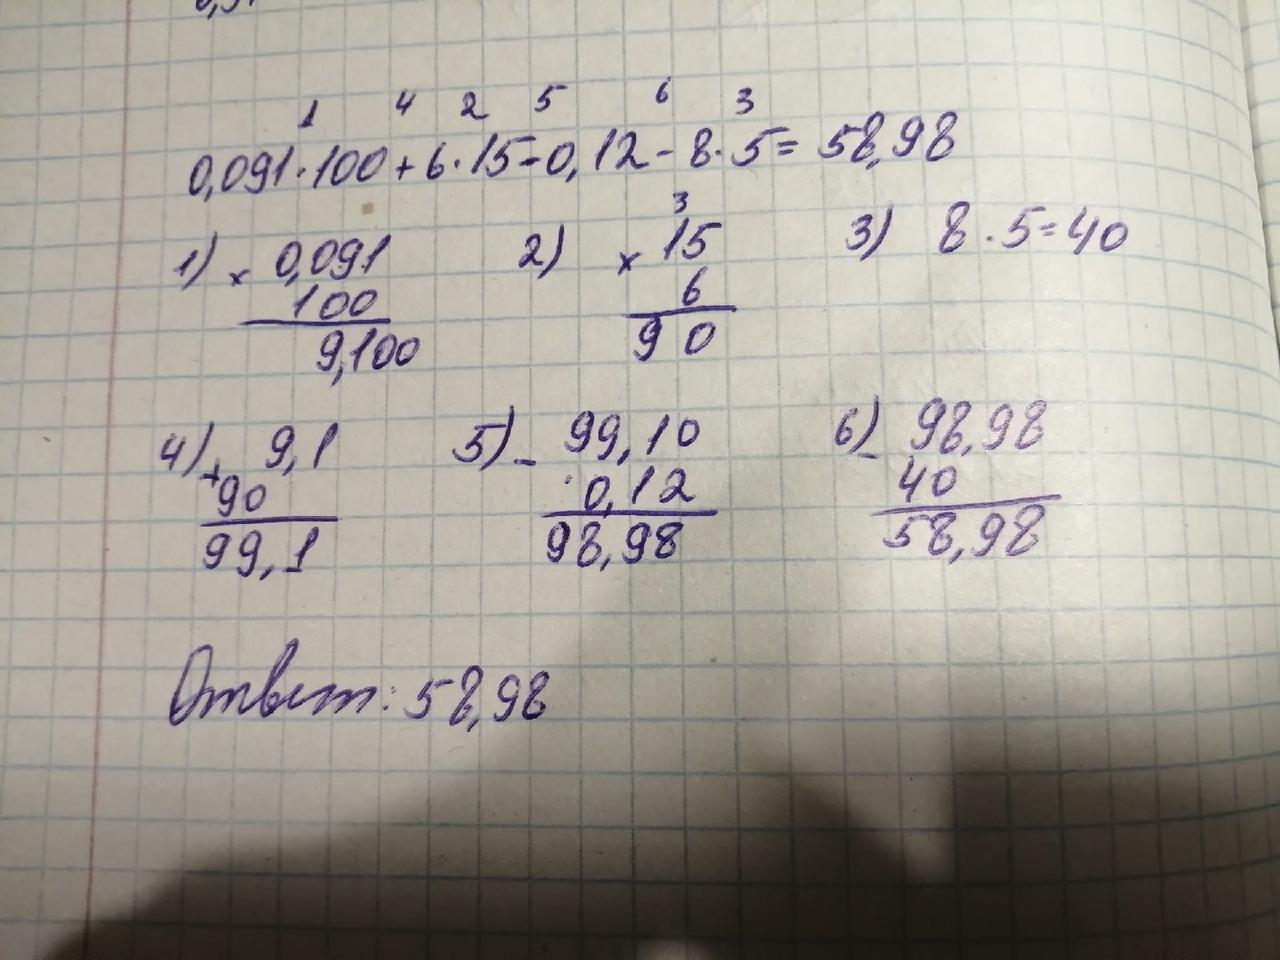 1 4 2 5 6 3
0,091·100+6·15-0,12-8·5=58,98
1) × 0,091
100
9,100
2) × 15
3
6
90
3) 8·5=40
4) + 9,1
90
99,1
5) - 99,10
0,12
98,98
6) - 98,98
40
58,98
Ответ: 58,98